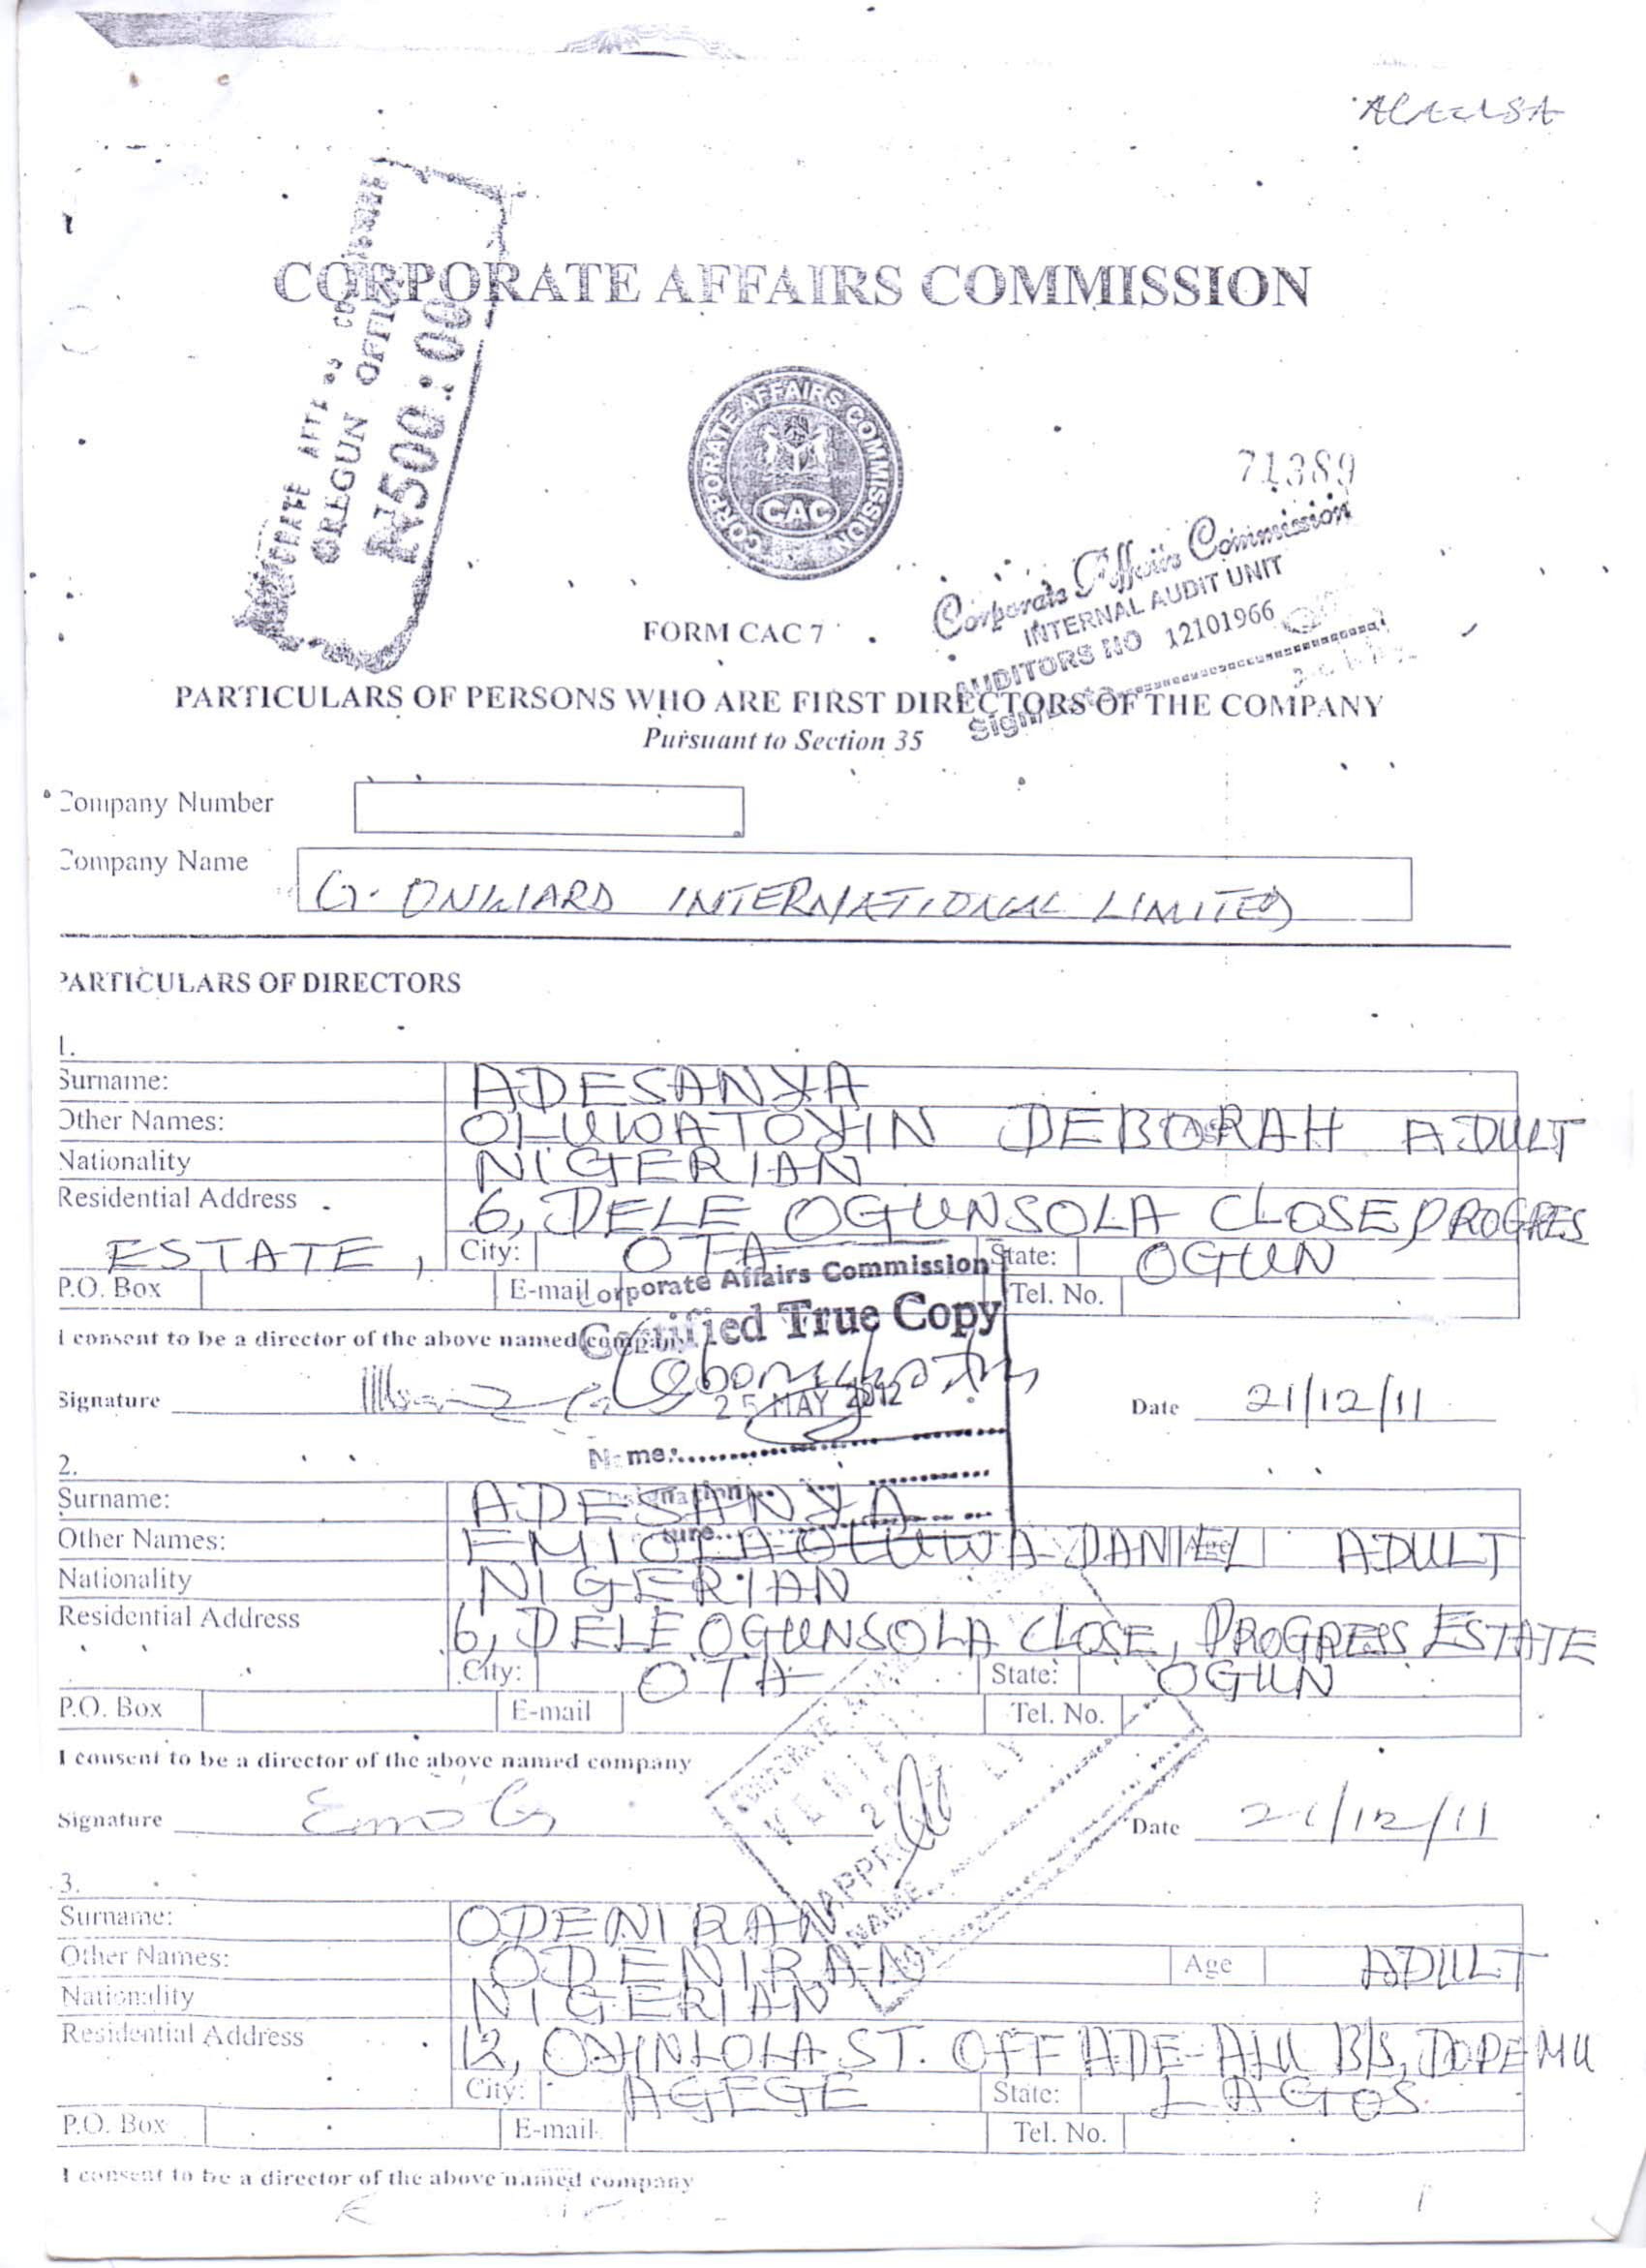 CORPORATE AFFAIRS COMMISSION
OREGUN OFFICE
₦500:00
CORPORATE AFFAIRS COMMISSION
CAC
71389
Corporate Affairs Commission
INTERNAL AUDIT UNIT
AUDITORS NO 12101966
FORM CAC 7
PARTICULARS OF PERSONS WHO ARE FIRST DIRECTORS OF THE COMPANY
Pursuant to Section 35
Company Number
Company Name G. ONWARD INTERNATIONAL LIMITED
PARTICULARS OF DIRECTORS
1.
Surname: ADESANYA
Other Names: OLUWATOYIN DEBORAH Age ADULT
Nationality NIGERIAN
Residential Address 6, DELE OGUNSOLA CLOSE PROGRES
ESTATE, City: OTA State: OGUN
P.O. Box E-mail Tel. No.
Corporate Affairs Commission
Certified True Copy
I consent to be a director of the above named company
25 MAY 2012
Signature Date 21/12/11
Name:
2.
Surname: ADESANYA
Other Names: EMIOLAOLUWA DANIEL Age ADULT
Nationality NIGERIAN
Residential Address 6, DELE OGUNSOLA CLOSE, PROGRESS ESTATE
City: OTA State: OGUN
P.O. Box E-mail Tel. No.
I consent to be a director of the above named company
Signature Date 21/12/11
NAME
3.
Surname: ODENIRAN
Other Names: ODENIRAN Age ADULT
Nationality NIGERIAN
Residential Address 12, OYINLOLA ST. OFF ADE-ALU B/S, DOPEMU
City: AGEGE State: LAGOS.
P.O. Box E-mail Tel. No.
I consent to be a director of the above named company